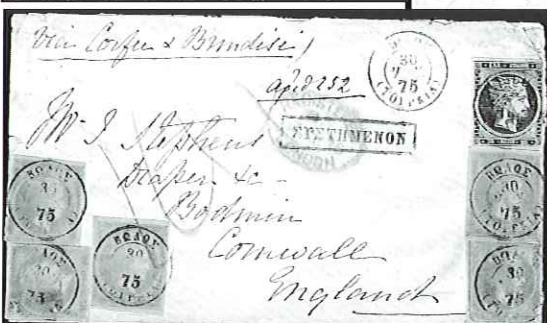 Via Corfu & Brindisi
ΒΩΛΟΣ
30
75
(ΤΟΥΡΚΙΑ)
ΣΥΣΤΗΜΕΝΟΝ
Mr J Stephens
Draper &c
Bodmin
Cornwall
England
ΒΩΛΟΣ
30
75
ΒΩΛΟΣ
30
75
ΒΩΛΟΣ
30
75
(ΤΟΥΡΚΙΑ)
30
75
(ΤΟΥΡΚΙΑ)
30
75